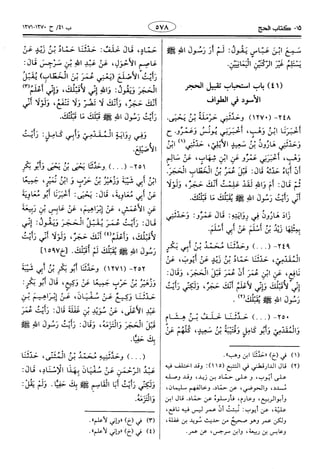 ١٥- كتاب الحج
٥٧٨
ب ٤١/ ح ١٢٧٠-١٢٧١
سمع ابن عباس يقول: لم أر رسول الله ﷺ
يستلم غير الركنين اليمانيين.
(٤١) باب استحباب تقبيل الحجر
الأسود في الطواف
٢٤٨- (١٢٧٠) وحدثني حرملة بن يحيى.
أخبرنا ابن وهب. أخبرني يونس وعمرو. ح
وحدثني هارون بن سعيد الأيلي. حدثني (١) ابن
وهب. أخبرني عمرو عن ابن شهاب، عن سالم
أن أباه حدثه قال: قبل عمر بن الخطاب الحجر.
ثم قال: أم والله لقد علمت أنك حجر. ولولا
أني رأيت رسول الله ﷺ يقبلك ما قبلتك.
زاد هارون في روايته: قال عمرو: وحدثني
بمثلها زيد بن أسلم عن أبيه أسلم.
٢٤٩- (...) وحدثنا محمد بن أبي بكر
المقدمي. حدثنا حماد بن زيد عن أيوب، عن
نافع، عن ابن عمر أن عمر قبل الحجر. وقال:
إني لأقبلك وإني لأعلم أنك حجر. ولكني رأيت
رسول الله ﷺ يقبلك (٢).
٢٥٠- (...) حدثنا خلف بن هشام
والمقدمي وأبو كامل وقتيبة بن سعيد. كلهم عن
حماد. قال خلف: حدثنا حماد بن زيد عن
عاصم الأحول، عن عبد الله بن سرجس قال:
رأيت الأصلع (يعني عمر بن الخطاب) يقبل
الحجر ويقول: والله إني لأقبلك، وإني أعلم (٣)
أنك حجر، وأنك لا تضر ولا تنفع، ولولا أني
رأيت رسول الله ﷺ قبلك ما قبلتك.
وفي رواية المقدمي وأبي كامل: رأيت
الأصيلع.
٢٥١- (...) وحدثنا يحيى بن يحيى وأبو بكر
ابن أبي شيبة وزهير بن حرب وابن نمير. جميعا
عن أبي معاوية. قال يحيى: أخبرنا أبو معاوية
عن الأعمش، عن إبراهيم، عن عابس بن ربيعة
قال: رأيت عمر يقبل الحجر ويقول: إني
لأقبلك. وأعلم (٤) أنك حجر. ولولا أني رأيت
رسول الله ﷺ يقبلك لم أقبلك.
٢٥٢- (١٢٧١) وحدثنا أبو بكر بن أبي شيبة
وزهير بن حرب. جميعا عن وكيع. قال أبو بكر:
حدثنا وكيع عن سفيان، عن إبراهيم بن
عبد الأعلى، عن سويد بن غفلة قال: رأيت عمر
قبل الحجر والتزمه. وقال: رأيت رسول الله ﷺ
بك حفيا.
(...) وحدثنيه محمد بن المثنى. حدثنا
عبد الرحمن عن سفيان بهذا الإسناد. قال:
ولكني رأيت أبا القاسم ﷺ بك حفيا. ولم يقل:
والتزمه.
(١) في (خ) «حدثنا ابن وهب».
(٢) قال الدارقطني في التتبع (١١٥): وقد اختلف فيه
على أيوب، و على حماد بن زيد، وقد وصله
مسدد، والحوضي، عن حماد. وخالفهم سليمان،
وأبو الربيع، وعارم، فأرسلوه عن حماد. قال ابن
علية، عن أيوب: نبئت أن عمر ليس فيه نافع،
ولكن عمر وهو صحيح من حديث سويد بن غفلة،
وعابس بن ربيعة، وابن سرجس، عن عمر.
(٣) في (خ) «وإني لأعلم».
(٤) في (خ) «وإني لأعلم».